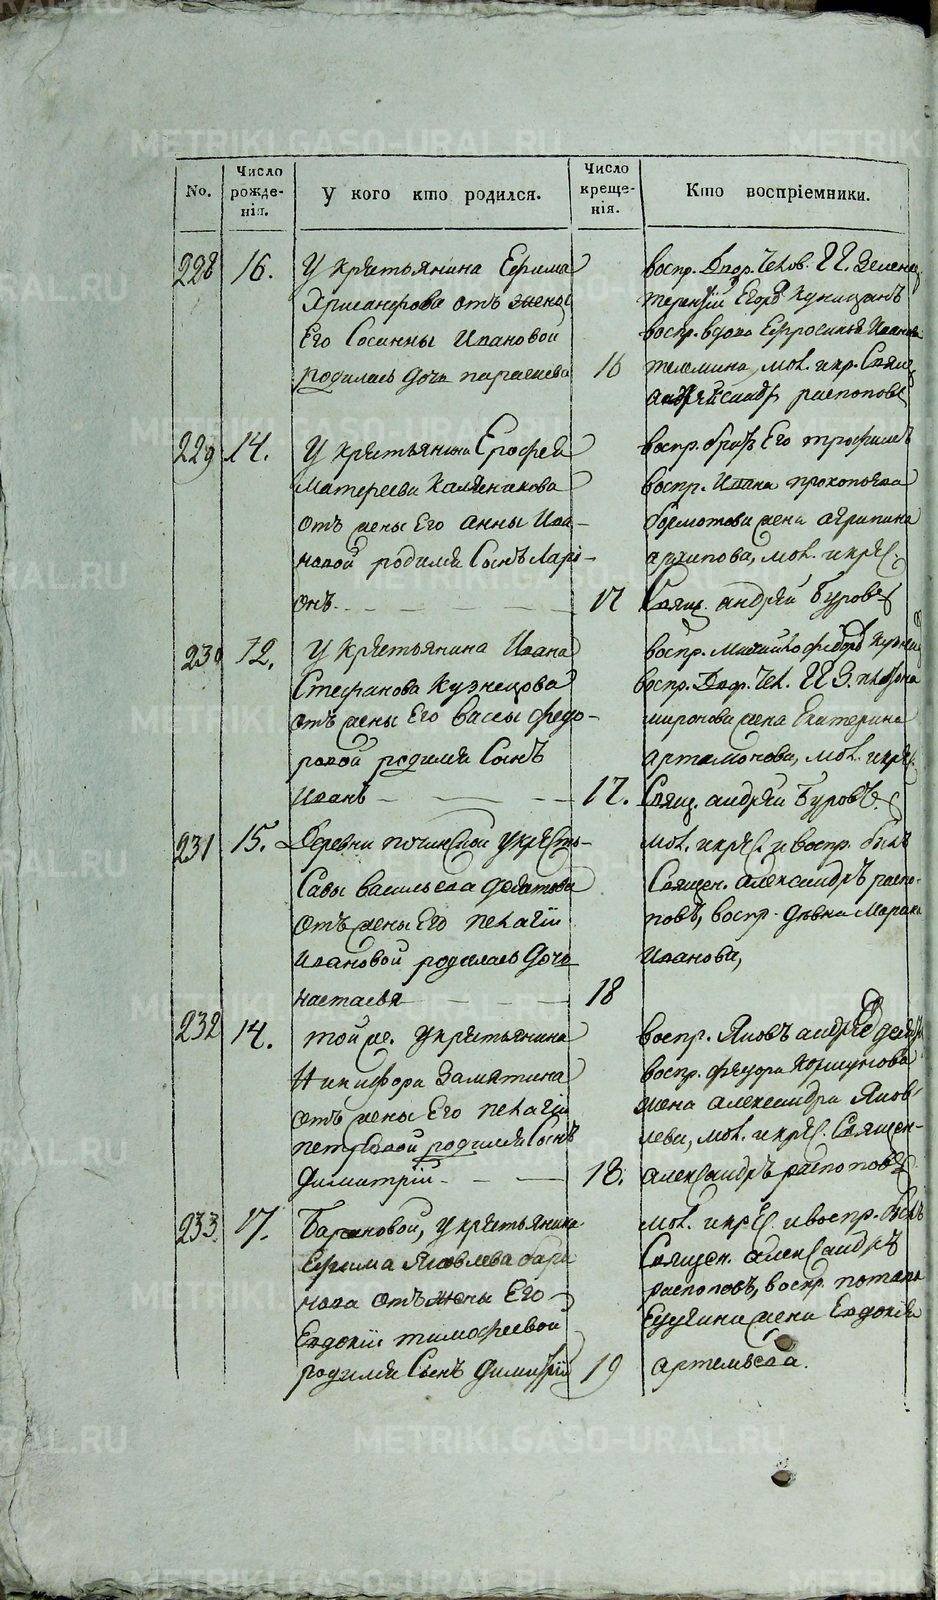 METRIKI.GASO-URAL.RU
No.
Число рожденія.
У кого кто родился.
Число крещенія.
Кто воспріемники.
228 16. У крестьянина Ефима
Хрисанфова отъ жены
Его Сосанны Ивановой
родилась дочь параскева 16
воспр. двор. чел. И.
Егоръ Куницынъ
воспр. вдова Ефросинья Иванова
мол. и кр. Свящ.
александръ распоповъ
229 14. У крестьянина Ерофея
Матфеева Калашникова
отъ жены Его анны Ива-
новой родился Сынъ Ларі-
онъ 17
воспр. братъ Его трофимъ
воспр. Ивана прокопьева
бормотова жена агрипина
архипова, мол. и крес.
Свящ. андрей Буровъ
230 12. У крестьянина Ивана
Стефанова Кузнецова
отъ жены Его вассы федо-
ровой родился Сынъ
Иванъ 17.
воспр.
воспр. двор. чел. И З.
миронова жена Екатерина
артамонова, мол. и крес.
Свящ. андрей Буровъ
231 15. Деревни починской у крестья
Савы васильева
отъ жены Его пелагіи
Ивановой родилась дочь
настасья 18
мол. и крес. и воспр. былъ
Священ. александръ распо-
повъ, воспр. девка Марина
Иванова,
232 14. той же. у крестьянина
Никифора Замятина
отъ жены Его пелагіи
петровой родился Сынъ
димитрій 18.
воспр. Яковъ андреевъ
воспр. федора Коршунова
жена александра Яков-
лева, мол. и крес. Священ-
александръ распоповъ
233 17. Барановой, у крестьянина
Ефима Яковлева бара
нова отъ жены Его
Евдокіи тимофеевой
родился Сынъ димитрій 19
мол. и крес. и воспр. былъ
Священ. александръ
распоповъ, воспр. потапа
жена Евдокія
артемьева.